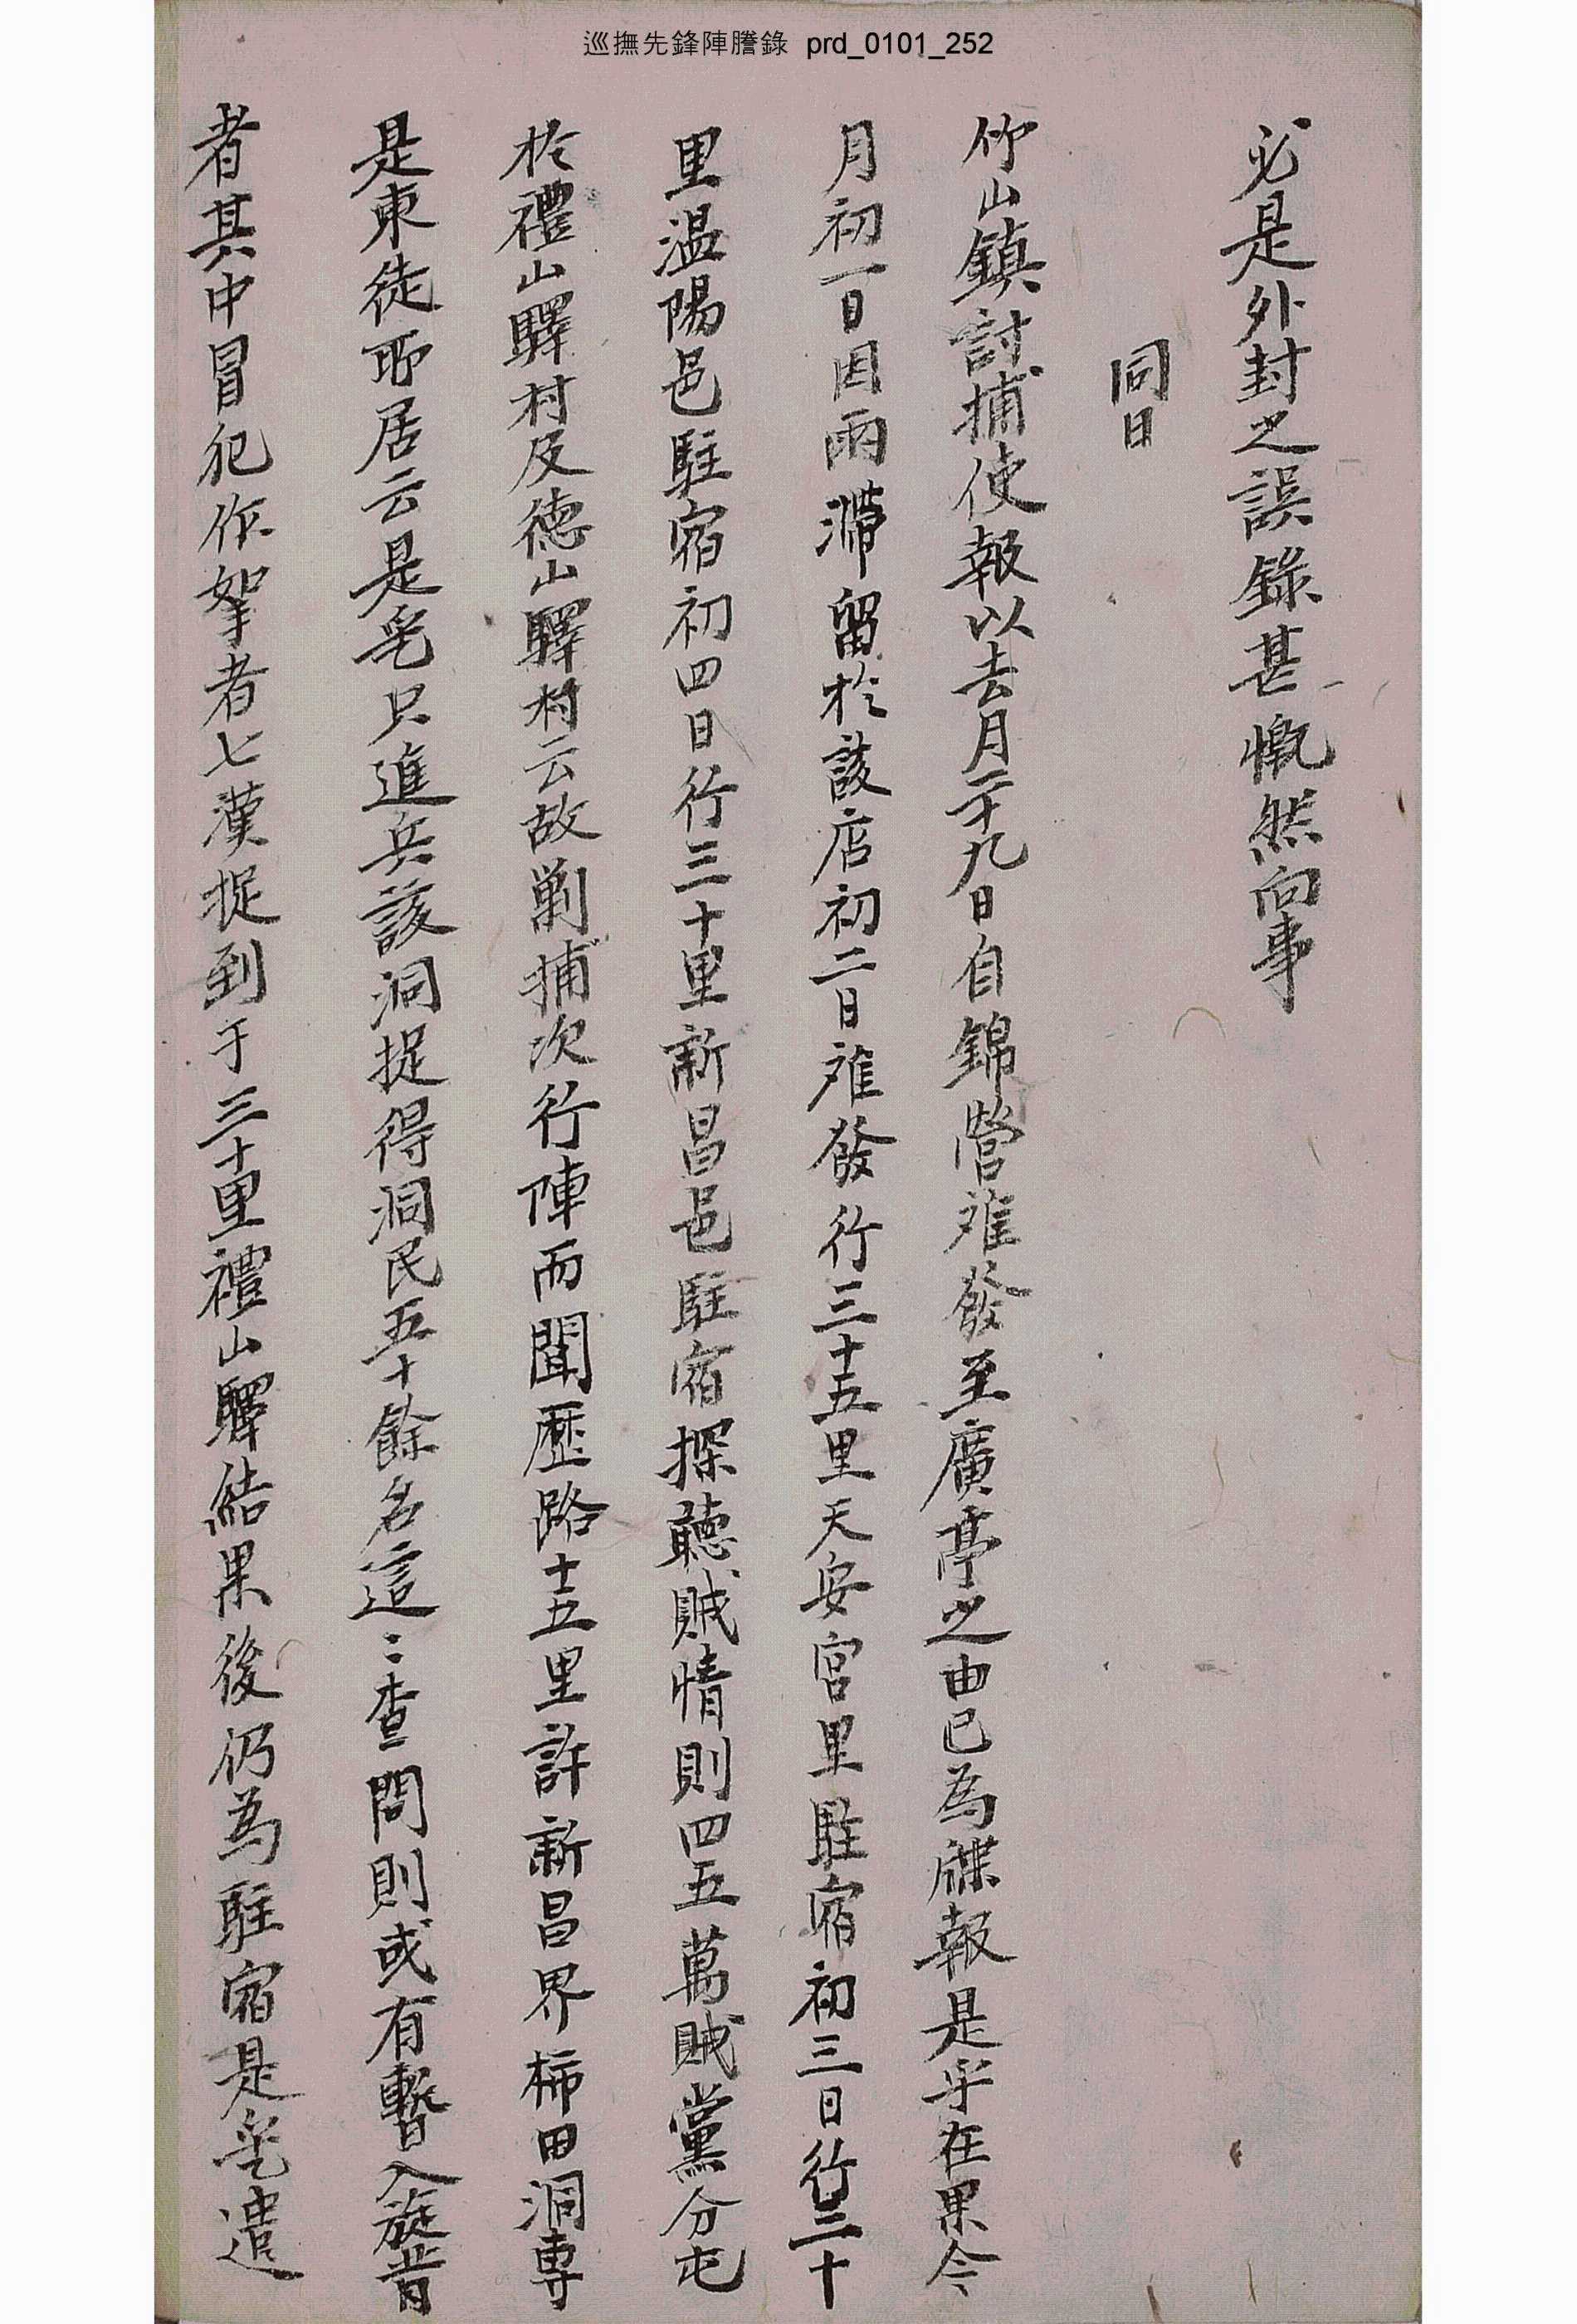 巡撫先鋒陣謄錄 prd_0101_252
必是外封之誤錄甚慨然向事
同日
竹山鎮討捕使報以去月二十九日自錦營離發至廣亭之由已為牒報是乎在果今
月初一日因雨滯留於該店初二日離發行三十五里天安宮里駐宿初三日行三十
里温陽邑駐宿初四日行三十里新昌邑駐宿探聽賊情則四五萬賊黨分屯
於禮山驛村及德山驛村云故剿捕次行陣而聞歷路十五里許新昌界柿田洞專
是東徒所居云是乎只進兵該洞捉得洞民五十餘名這這查問則或有暫入旋背
者其中冒犯作拏者七漢捉到于三十里禮山驛結果後仍為駐宿是乎遣